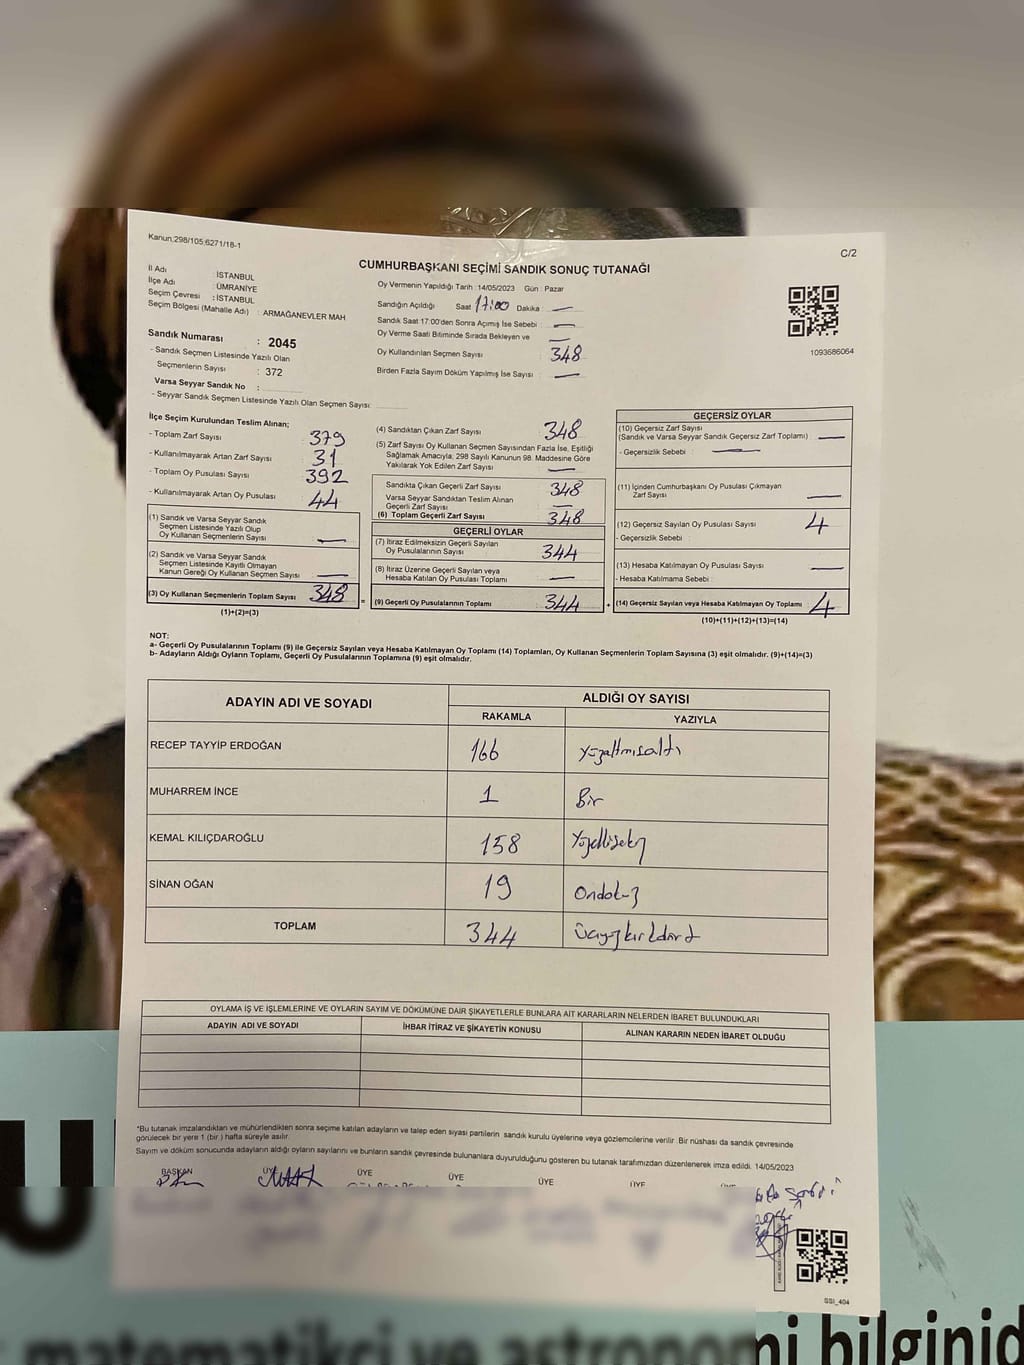 Kanun;298/105;6271/18-1
C/2
CUMHURBAŞKANI SEÇİMİ SANDIK SONUÇ TUTANAĞI
İl Adı : İSTANBUL
İlçe Adı : ÜMRANİYE
Seçim Çevresi : İSTANBUL
Seçim Bölgesi (Mahalle Adı) : ARMAĞANEVLER MAH
Sandık Numarası : 2045
- Sandık Seçmen Listesinde Yazılı Olan
Seçmenlerin Sayısı : 372
Varsa Seyyar Sandık No :
- Seyyar Sandık Seçmen Listesinde Yazılı Olan Seçmen Sayısı:
Oy Vermenin Yapıldığı Tarih :14/05/2023 Gün : Pazar
Sandığın Açıldığı Saat 17:00 Dakika : —
Sandık Saat 17:00'den Sonra Açımış İse Sebebi : —
Oy Verme Saati Bitiminde Sırada Bekleyen ve —
Oy Kullandırılan Seçmen Sayısı 348
Birden Fazla Sayım Döküm Yapılmış İse Sayısı : —
1093686064
İlçe Seçim Kurulundan Teslim Alınan;
- Toplam Zarf Sayısı 379
- Kullanılmayarak Artan Zarf Sayısı 31
- Toplam Oy Pusulası Sayısı 392
- Kullanılmayarak Artan Oy Pusulası 44
(1) Sandık ve Varsa Seyyar Sandık
Seçmen Listesinde Yazılı Olup
Oy Kullanan Seçmenlerin Sayısı —
(2) Sandık ve Varsa Seyyar Sandık
Seçmen Listesinde Kayıtlı Olmayan
Kanun Gereği Oy Kullanan Seçmen Sayısı —
(3) Oy Kullanan Seçmenlerin Toplam Sayısı 348
(1)+(2)=(3)
(4) Sandıktan Çıkan Zarf Sayısı 348
(5) Zarf Sayısı Oy Kullanan Seçmen Sayısından Fazla İse, Eşitliği
Sağlamak Amacıyla, 298 Sayılı Kanunun 98. Maddesine Göre
Yakılarak Yok Edilen Zarf Sayısı —
Sandıkta Çıkan Geçerli Zarf Sayısı 348
Varsa Seyyar Sandıktan Teslim Alınan
Geçerli Zarf Sayısı —
(6) Toplam Geçerli Zarf Sayısı 348
GEÇERLİ OYLAR
(7) İtiraz Edilmeksizin Geçerli Sayılan
Oy Pusulalarının Sayısı 344
(8) İtiraz Üzerine Geçerli Sayılan veya
Hesaba Katılan Oy Pusulası Toplamı —
= (9) Geçerli Oy Pusulalarının Toplamı 344
GEÇERSİZ OYLAR
(10) Geçersiz Zarf Sayısı
(Sandık ve Varsa Seyyar Sandık Geçersiz Zarf Toplamı) —
- Geçersizlik Sebebi : —
(11) İçinden Cumhurbaşkanı Oy Pusulası Çıkmayan
Zarf Sayısı —
(12) Geçersiz Sayılan Oy Pusulası Sayısı 4
- Geçersizlik Sebebi :
(13) Hesaba Katılmayan Oy Pusulası Sayısı —
- Hesaba Katılmama Sebebi :
+ (14) Geçersiz Sayılan veya Hesaba Katılmayan Oy Toplamı 4
(10)+(11)+(12)+(13)=(14)
NOT:
a- Geçerli Oy Pusulalarının Toplamı (9) ile Geçersiz Sayılan veya Hesaba Katılmayan Oy Toplamı (14) Toplamları, Oy Kullanan Seçmenlerin Toplam Sayısına (3) eşit olmalıdır. (9)+(14)=(3)
b- Adayların Aldığı Oyların Toplamı, Geçerli Oy Pusulalarının Toplamına (9) eşit olmalıdır.
ADAYIN ADI VE SOYADI ALDIĞI OY SAYISI
RAKAMLA YAZIYLA
RECEP TAYYİP ERDOĞAN 166 Yüzaltmışaltı
MUHARREM İNCE 1 Bir
KEMAL KILIÇDAROĞLU 158 Yüzellisekiz
SİNAN OĞAN 19 Ondokuz
TOPLAM 344 Üçyüzkırkdört
OYLAMA İŞ VE İŞLEMLERİNE VE OYLARIN SAYIM VE DÖKÜMÜNE DAİR ŞİKAYETLERLE BUNLARA AİT KARARLARIN NELERDEN İBARET BULUNDUKLARI
ADAYIN ADI VE SOYADI İHBAR İTİRAZ VE ŞİKAYETİN KONUSU ALINAN KARARIN NEDEN İBARET OLDUĞU
*Bu tutanak imzalandıktan ve mühürlendikten sonra seçime katılan adayların ve talep eden siyasi partilerin sandık kurulu üyelerine veya gözlemcilerine verilir. Bir nüshası da sandık çevresinde
görülecek bir yere 1 (bir) hafta süreyle asılır.
Sayım ve döküm sonucunda adayların aldığı oyların sayılarını ve bunların sandık çevresinde bulunanlara duyurulduğunu gösteren bu tutanak tarafımızdan düzenlenerek imza edildi. 14/05/2023
BAŞKAN ÜYE ÜYE ÜYE ÜYE ÜYE ÜYE
SSI_404
matematikçi ve astronomi bilginid